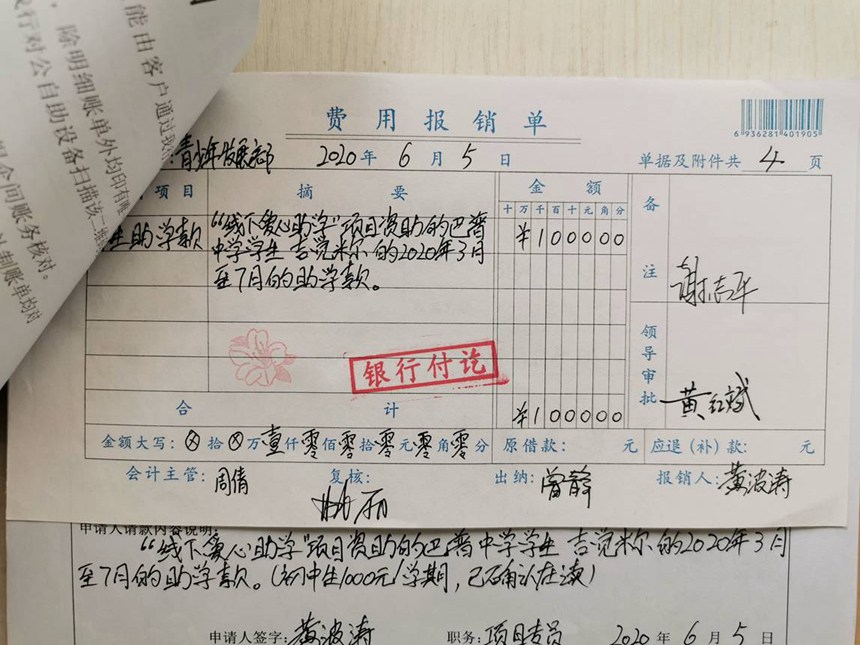 能由客户通过我
除明细账单外均印有唯
行对公自助设备扫描该二维
账务核对。
制账单均对
费用报销单
6 936281 401905
青少年发展部 2020年6月5日 单据及附件共 4 页
项目 摘要 金额 备注
十万千百十元角分
生助学款 “线下爱心助学”项目资助的巴普 ¥100000
中学学生 吉觉米尔 的2020年3月
至7月的助学款。
谢志平
银行付讫
领导审批 黄红斌
合计 ¥100000
金额大写:⊗拾⊗万壹仟零佰零拾零元零角零分 原借款: 元 应退(补)款: 元
会计主管:周倩 复核: 出纳:曾静 报销人:黄波涛
申请人请款内容说明:
“线下爱心助学”项目资助的巴普中学学生 吉觉米尔 的2020年3月
至7月的助学款。(初中生1000元/学期,已确认在读)
申请人签字:黄波涛 职务:项目专员 2020年6月5日